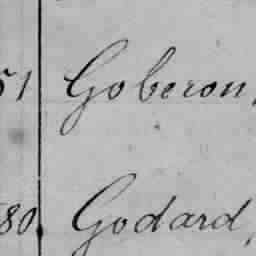 51 Goberon,
80. Godard,